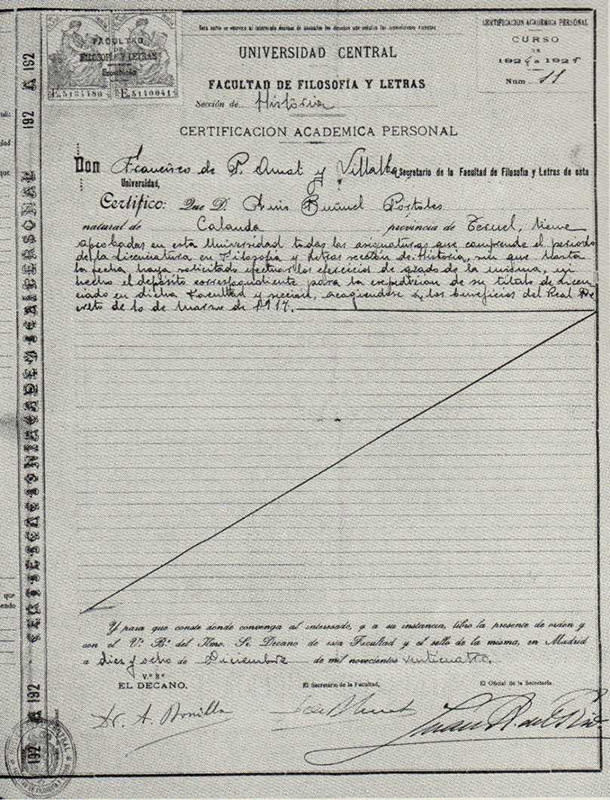 CERTIFICACION ACADEMICA PERSONAL
CURSO
DE
1924 a 1925
Núm. 11
FACULTAD
DE
FILOSOFÍA Y LETRAS
E.5134780 E.5140041
UNIVERSIDAD CENTRAL
FACULTAD DE FILOSOFÍA Y LETRAS
Sección de Historia
CERTIFICACION ACADEMICA PERSONAL
Don Francisco de P. Amat y Villalba, Secretario de la Facultad de Filosofía y Letras de esta
Universidad,
Certifico: Que D. Luis Buñuel Portoles
natural de Calanda provincia de Teruel, tiene
aprobadas en esta Universidad todas las asignaturas que comprende el periodo
de la Licenciatura en Filosofía y Letras sección de Historia, sin que hasta
la fecha haya solicitado efectuar los ejercicios de grado de la misma, ni
hecho el depósito correspondiente para la expedicion de su título de Licen
ciado en dicha Facultad y sección, acogiendose a los beneficios del Real De
creto de 10 de Marzo de 1917.
Y para que conste donde convenga al interesado, y a su instancia, libro la presente de orden y
con el V.º B.º del Ilmo. Sr. Decano de esa Facultad y el sello de la misma, en Madrid
a diez y ocho de Diciembre de mil novecientos veinticuatro.
V.º B.º
EL DECANO, El Secretario de la Facultad, El Oficial de la Secretaría,
Dr. A. Bonilla
192 A 192
192 A 192